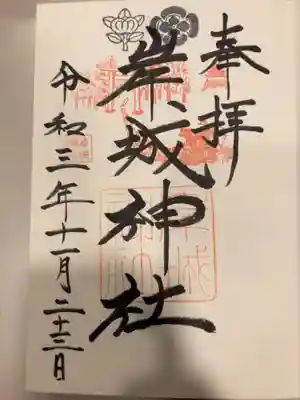 奉拝
岸城神社
令和三年十一月二十三日